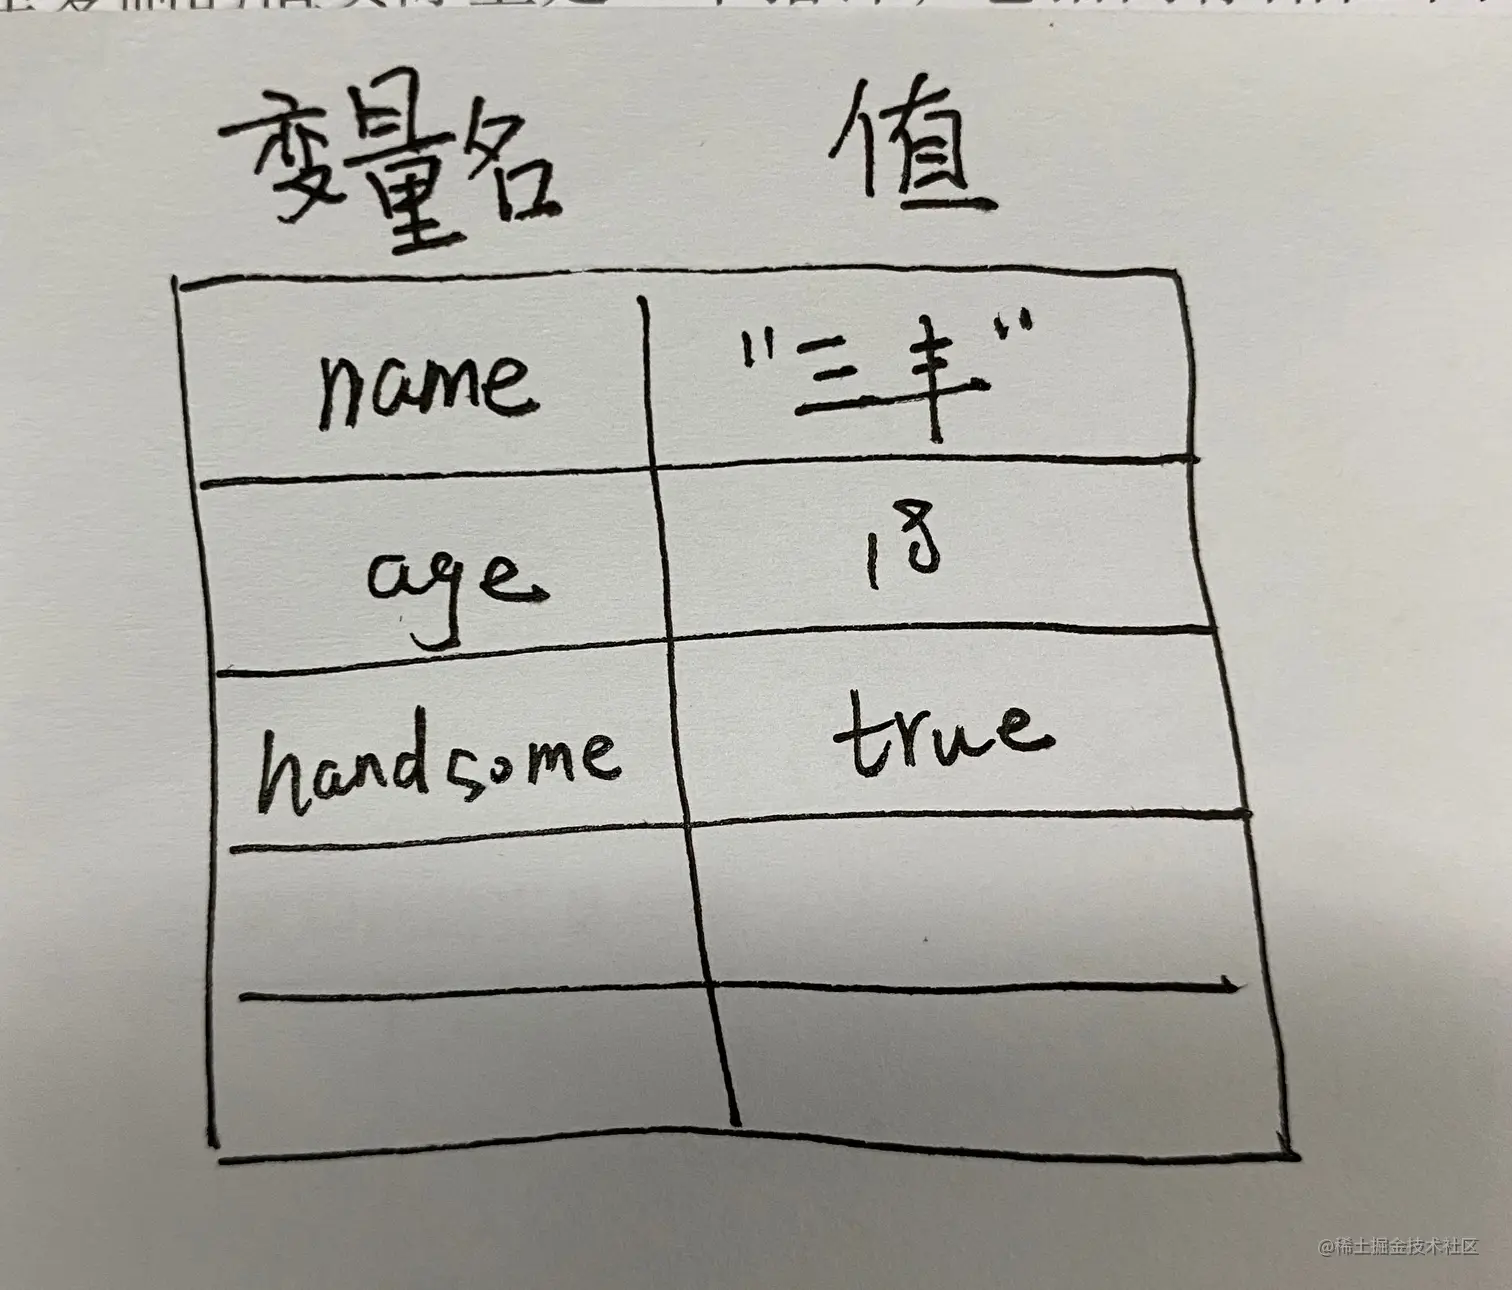 变量名 值
name "三丰"
age 18
handsome true
@稀土掘金技术社区